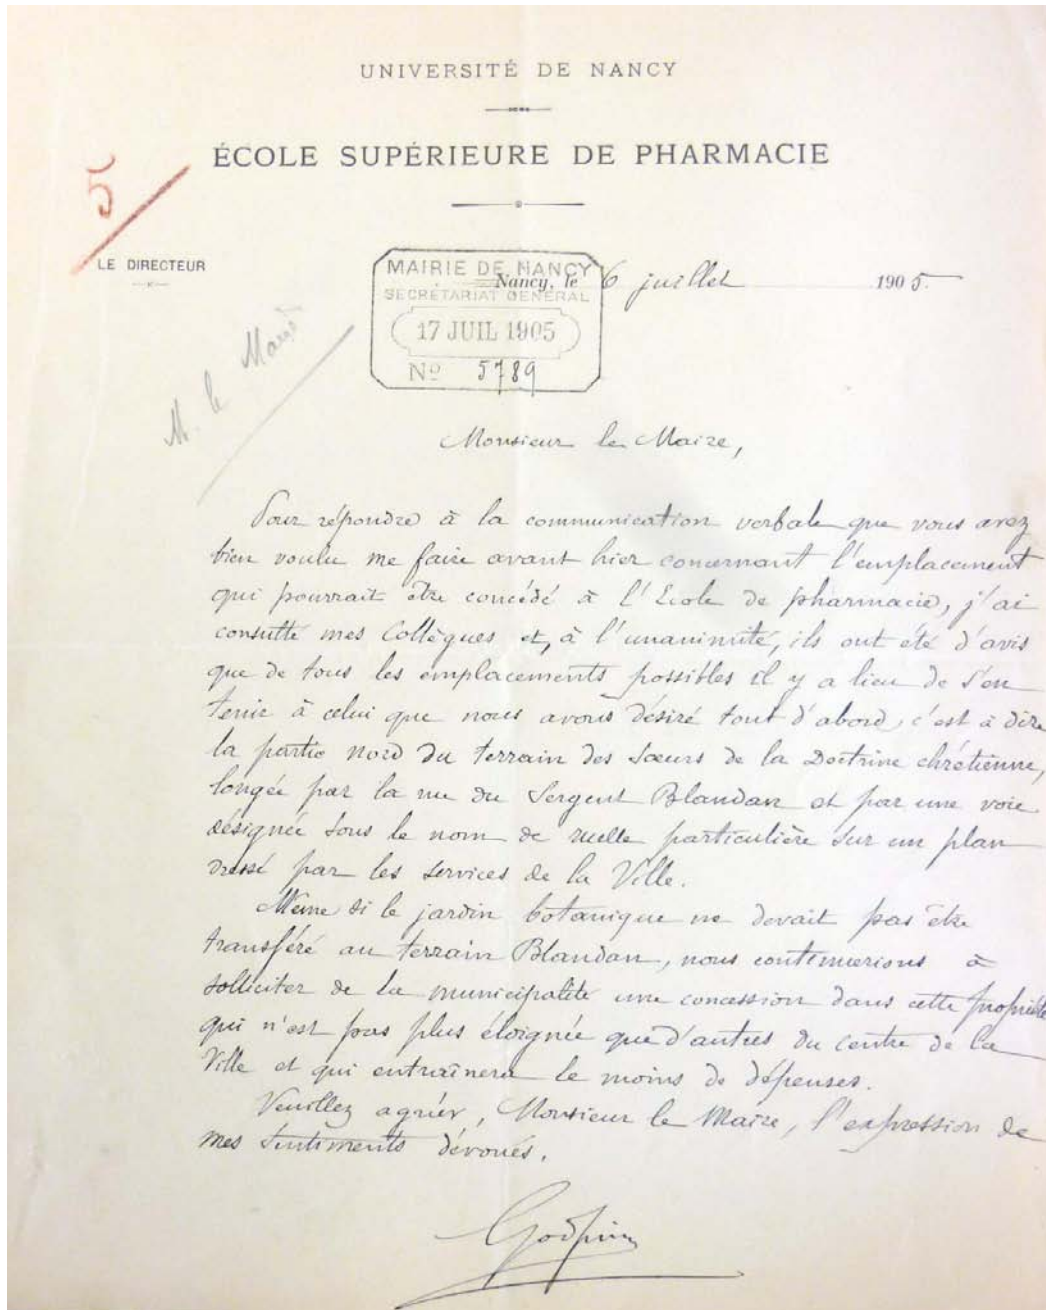 UNIVERSITÉ DE NANCY
ÉCOLE SUPÉRIEURE DE PHARMACIE
5
LE DIRECTEUR
MAIRIE DE NANCY
SECRÉTARIAT GÉNÉRAL
17 JUIL 1905
No 5789
Nancy, le 6 juillet 1905.
M. le
Monsieur le Maire,
Pour répondre à la communication verbale que vous avez
bien voulu me faire avant hier concernant l'emplacement
qui pourrait être concédé à l'Ecole de pharmacie, j'ai
consulté mes Collègues et, à l'unanimité, ils ont été d'avis
que de tous les emplacements possibles il y a lieu de s'en
tenir à celui que nous avons désiré tout d'abord, c'est à dire
la partie nord du terrain des Sœurs de la Doctrine chrétienne,
longée par la rue du Sergent Blandan et par une voie
désignée sous le nom de ruelle particulière sur un plan
dressé par les services de la Ville.
Même si le jardin botanique ne devait pas être
transféré au terrain Blandan, nous continuerions à
solliciter de la municipalité une concession dans cette propriété
qui n'est pas plus éloignée que d'autres du centre de la
Ville et qui entraînera le moins de dépenses.
Veuillez agréer, Monsieur le Maire, l'expression de
mes sentiments dévoués.
Godfrin